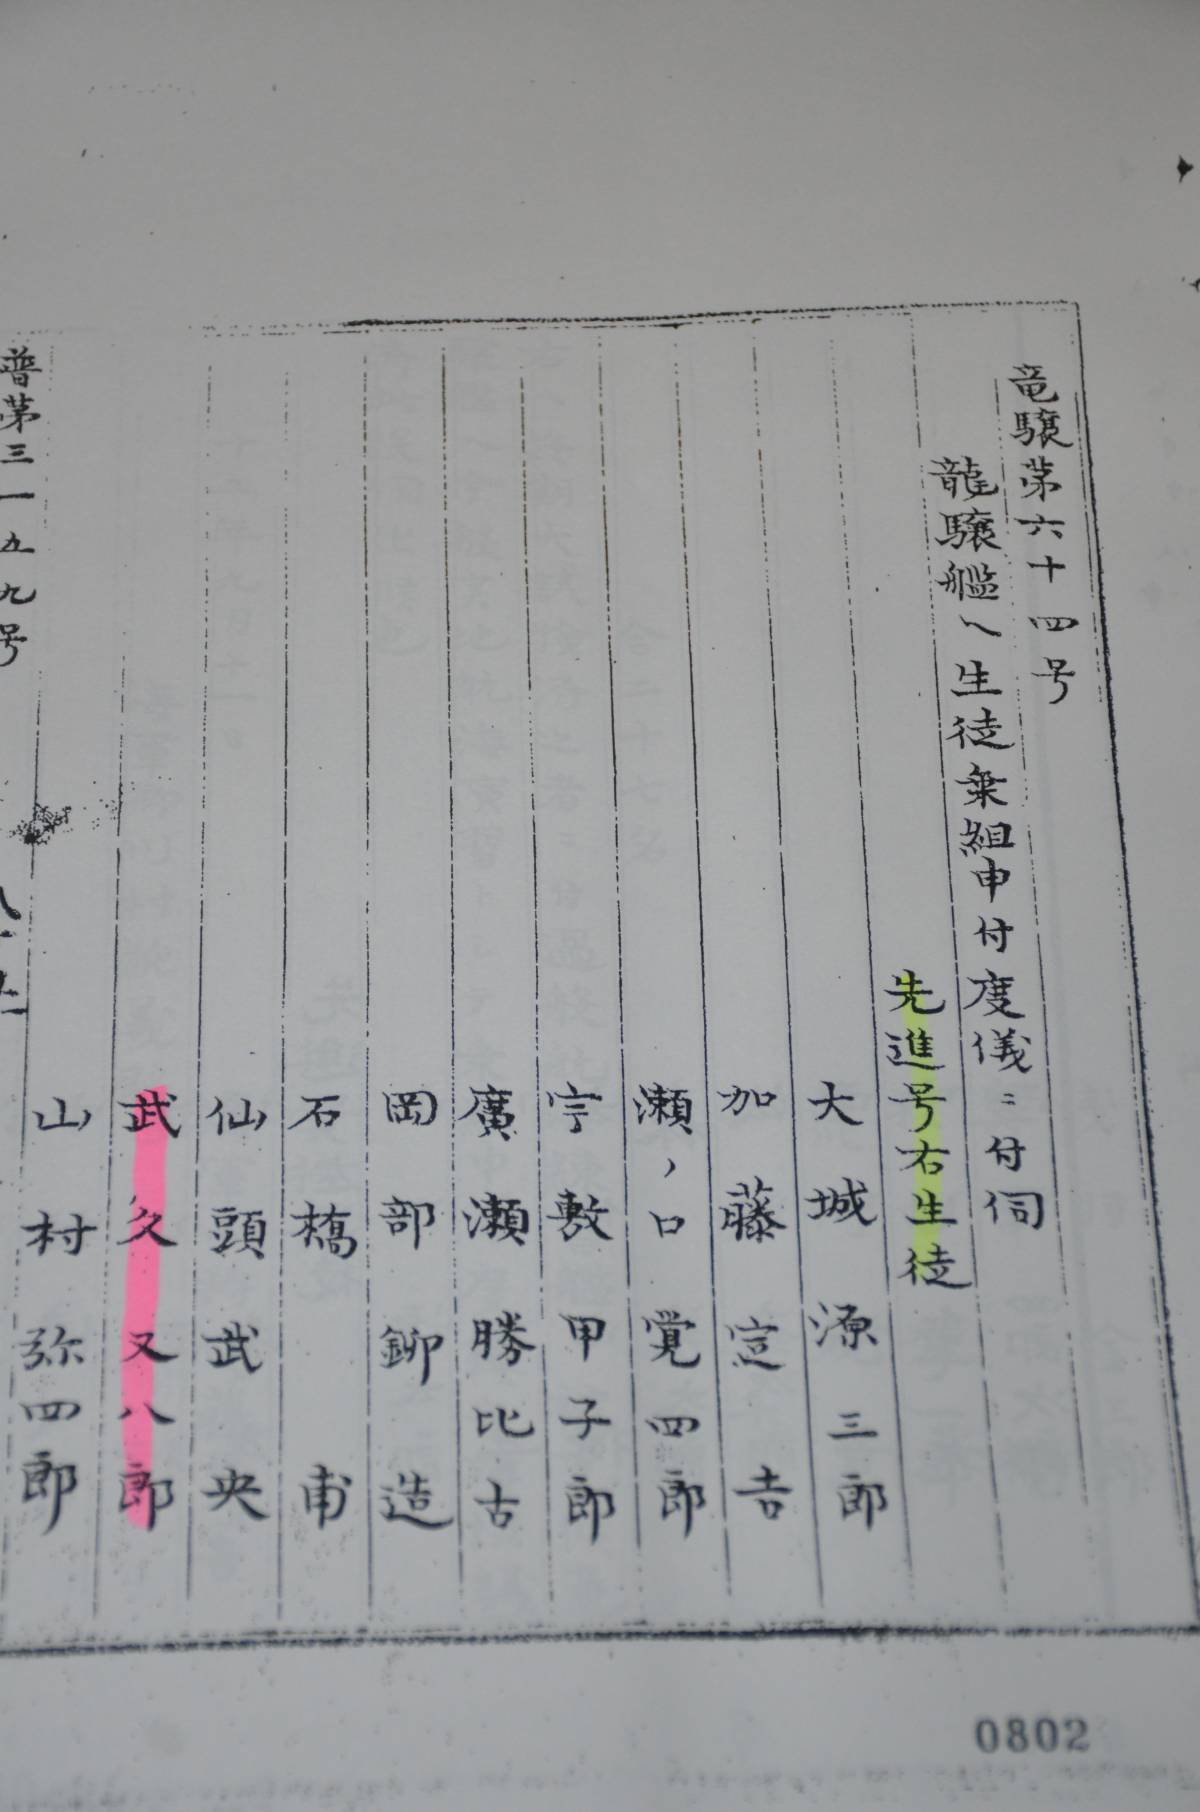 竜驤第六十四号
龍驤艦ヘ生徒乗組申付度儀ニ付伺
先進号右生徒
大城源三郎
加藤定吉
瀬ノ口覚四郎
宇敷甲子郎
廣瀬勝比古
岡部鉚造
石橋甫
仙頭武央
武久又八郎
山村弥四郎
普第三一五九号
0802